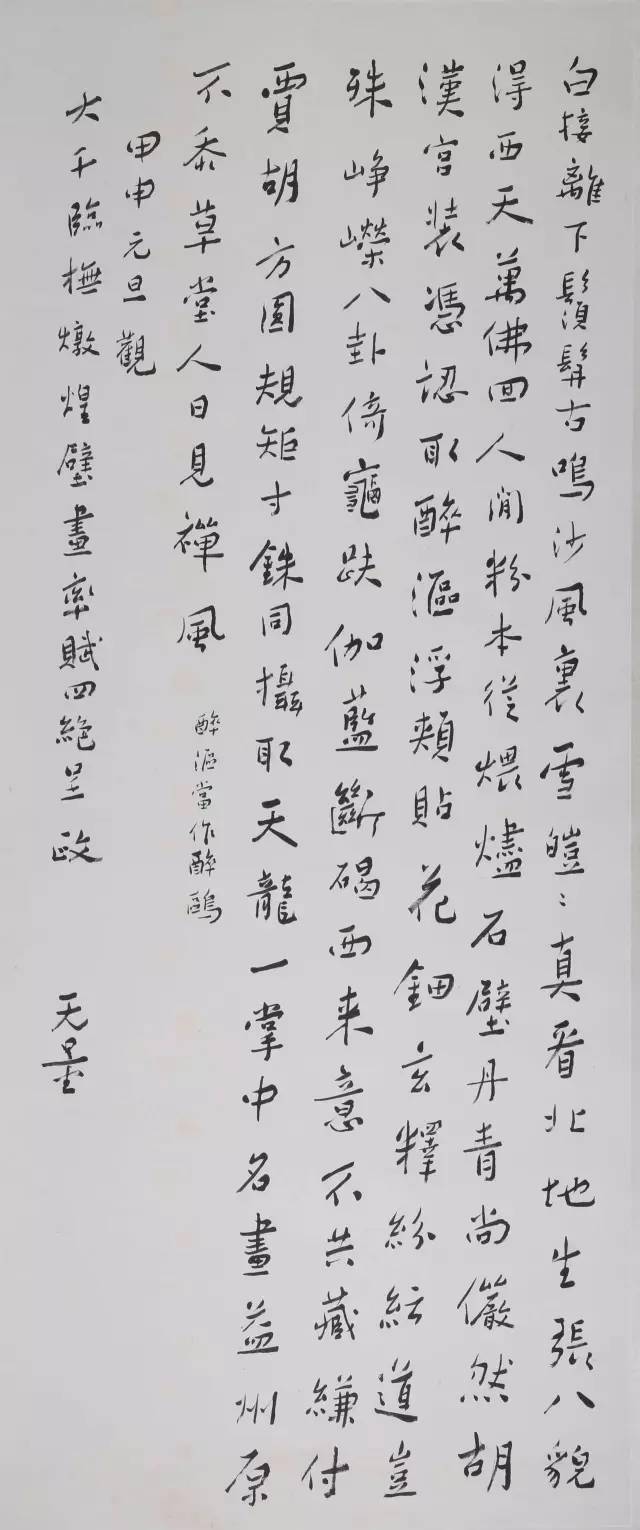 白接離下鬚髯古鳴沙風裏雪皚〻真看北地生張八貌
得西天萬佛回人間粉本從煨燼石壁丹青尚儼然胡
漢宮裝憑認取醉漚浮頰貼花鈿玄釋紛紜道豈
殊崢嶸八卦倚龜趺伽藍斷碣西來意不共藏縑付
賈胡方圓規矩寸銖同攝取天龍一掌中名畫益州原
不忝草堂人日見禪風 醉漚當作醉鷗
甲申元旦觀
大千臨橅燉煌壁畫率賦四絕呈政 无量